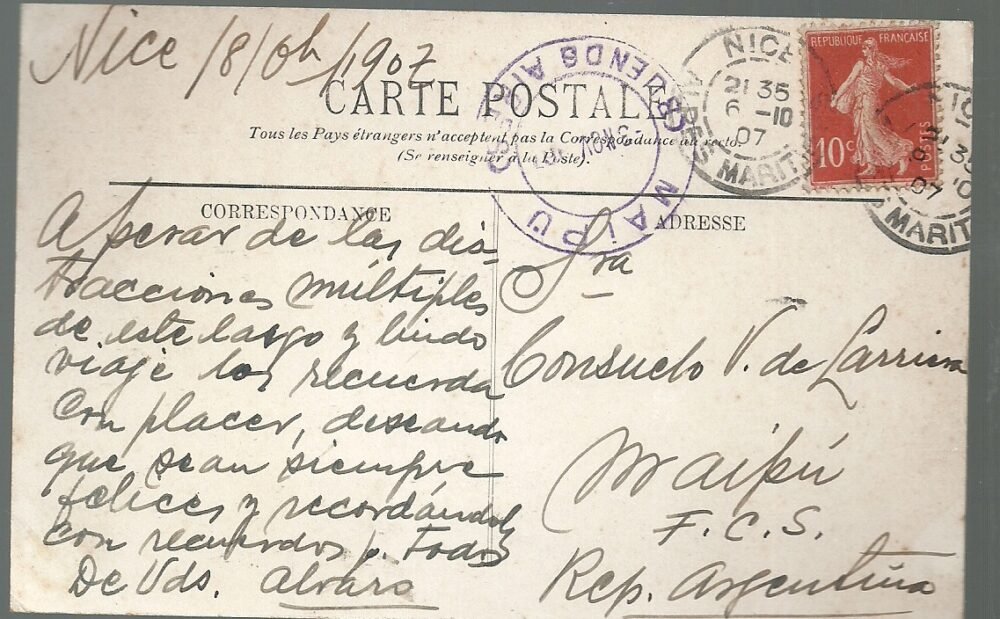 Nice /8/Oh/1907
CARTE POSTALE
Tous les Pays étrangers n'acceptent pas la Correspondance au recto.
(Se renseigner à la Poste).
REPUBLIQUE FRANÇAISE
10c POSTES
NICE
21 35
6 -10
07
ALPES MARIT
21 35
07
MARIT
BUENOS AIRES
MAIPU
CORRESPONDANCE
A pesar de las dis-
tracciones múltiples
de este largo y lindo
viaje los recuerda
con placer, deseando
que sean siempre
felices y recordándoles
con recuerdos p. Todos
De Vds. Alvaro
ADRESSE
Sra
Consuelo V. de Larriera
Maipú
F.C.S.
Rep. Argentina